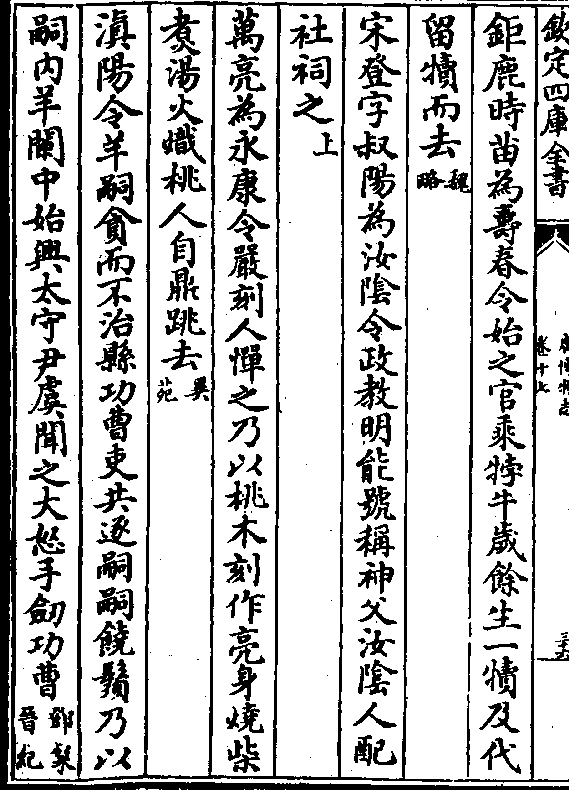 欽定四庫全書
卷十七
鉅鹿時苗為壽春令始之官乘牸牛歲餘生一犢及代
留犢而去魏略
宋登字叔陽為汝隂令政教明能號稱神父汝隂人配
社祠之上
萬亮為永康令嚴刻人憚之乃以桃木刻作亮身燒柴
煑湯火熾桃人自鼎跳去異苑
滇陽令羊嗣貪而不治縣功曹吏共逐嗣嗣饒鬚乃以
嗣内羊闌中始興太守尹虞聞之大怒手劒功曹鄧粲晉紀